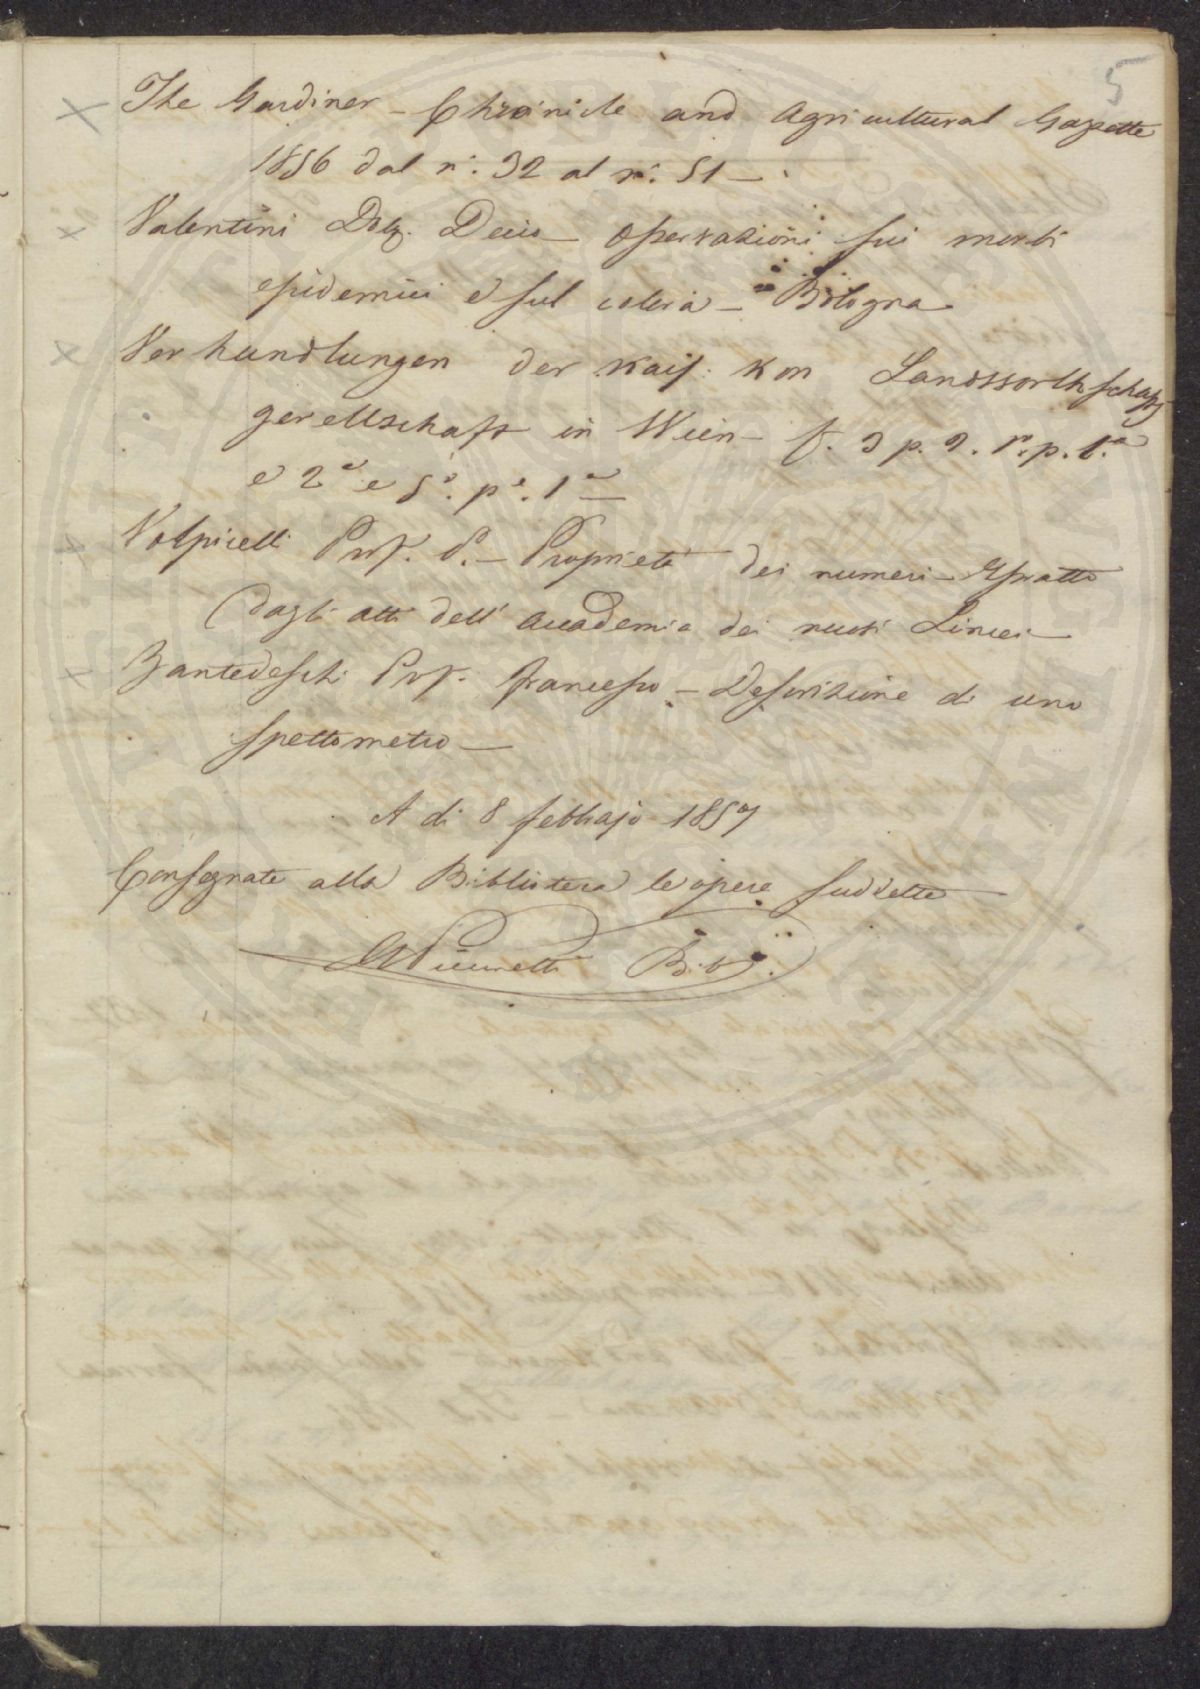 5
The Gardiner - Chronicle and Agricultural Gazette
1856 dal n°. 32 al n°. 51 -
Valentini Dott. Decio Osservazioni sui morbi
epidemici e sul colera - Bologna
Verhandlungen der Kais: Kon
gesellschaft in Wien - f. 3 p. 2. 1°. p. 1.a
e 2a e 5°. pe. 1a
Volpicelli Prof. P. - Proprietà dei numeri - Estratto
dagli atti dell' Accademia dei nuovi Lincei
Zantedeschi Prof. Francesco - Descrizione di uno
spettometro -
A di 8 febbrajo 1857
Consegnate alla Biblioteca le opere suddette
Bib.